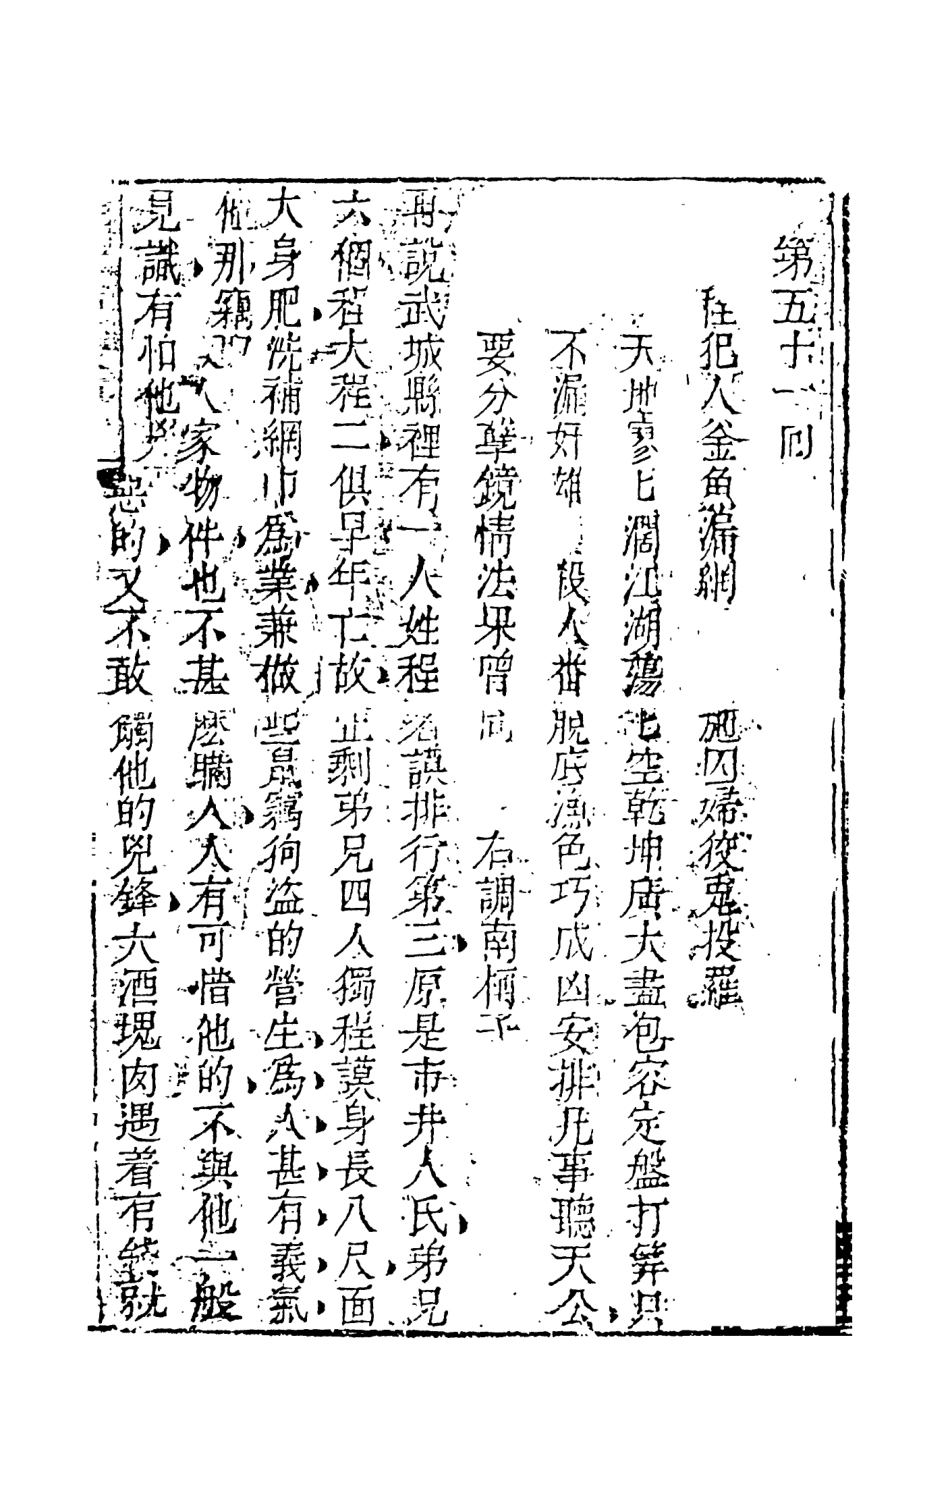 第五十一回
犯人釜魚漏網 施囚婦狡兔投羅
天地寥匕濶江湖蕩匕空乾坤廣大盡包容定盤打筭只
不漏奸雄 殺人番脫底漁色巧成凶安排凡事聽天公
要分孽鏡情法果曾同 右調南柯子
再說武城縣裡有一人姓程名謨排行第三原是市井人氏弟兄
六個程大程二俱早年亡故止剩弟兄四人獨程謨身長八尺面
大身肥洗補網巾為業兼做些鼠竊狗盜的營生為人甚有義氣
他那竊人家物件也不甚麽瞞人人有可惜他的不與他一般
見識有怕他兇惡的又不敢觸他的兇鋒大酒塊肉遇着有錢就